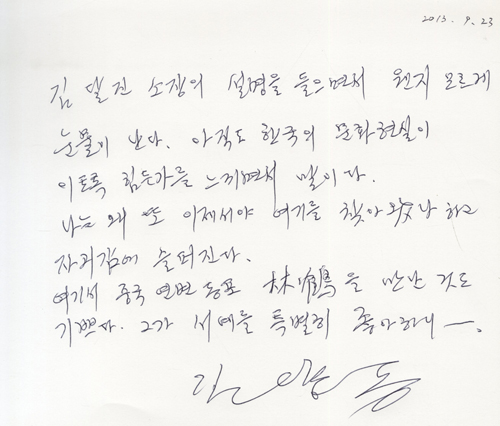 2013. 9. 23
김달진 소장의 설명을 들으면서 웬지 모르게
눈물이 난다. 아직도 한국의 문화현실이
이토록 힘든가를 느끼면서 말이다.
나는 왜 또 이제서야 여기를 찾아왔나 하고
자괴감에 슬퍼진다.
여기서 중국 연변 동포 林雀鶴을 만난 것도
기쁘다. 그가 서예를 특별히 좋아하니 ―.